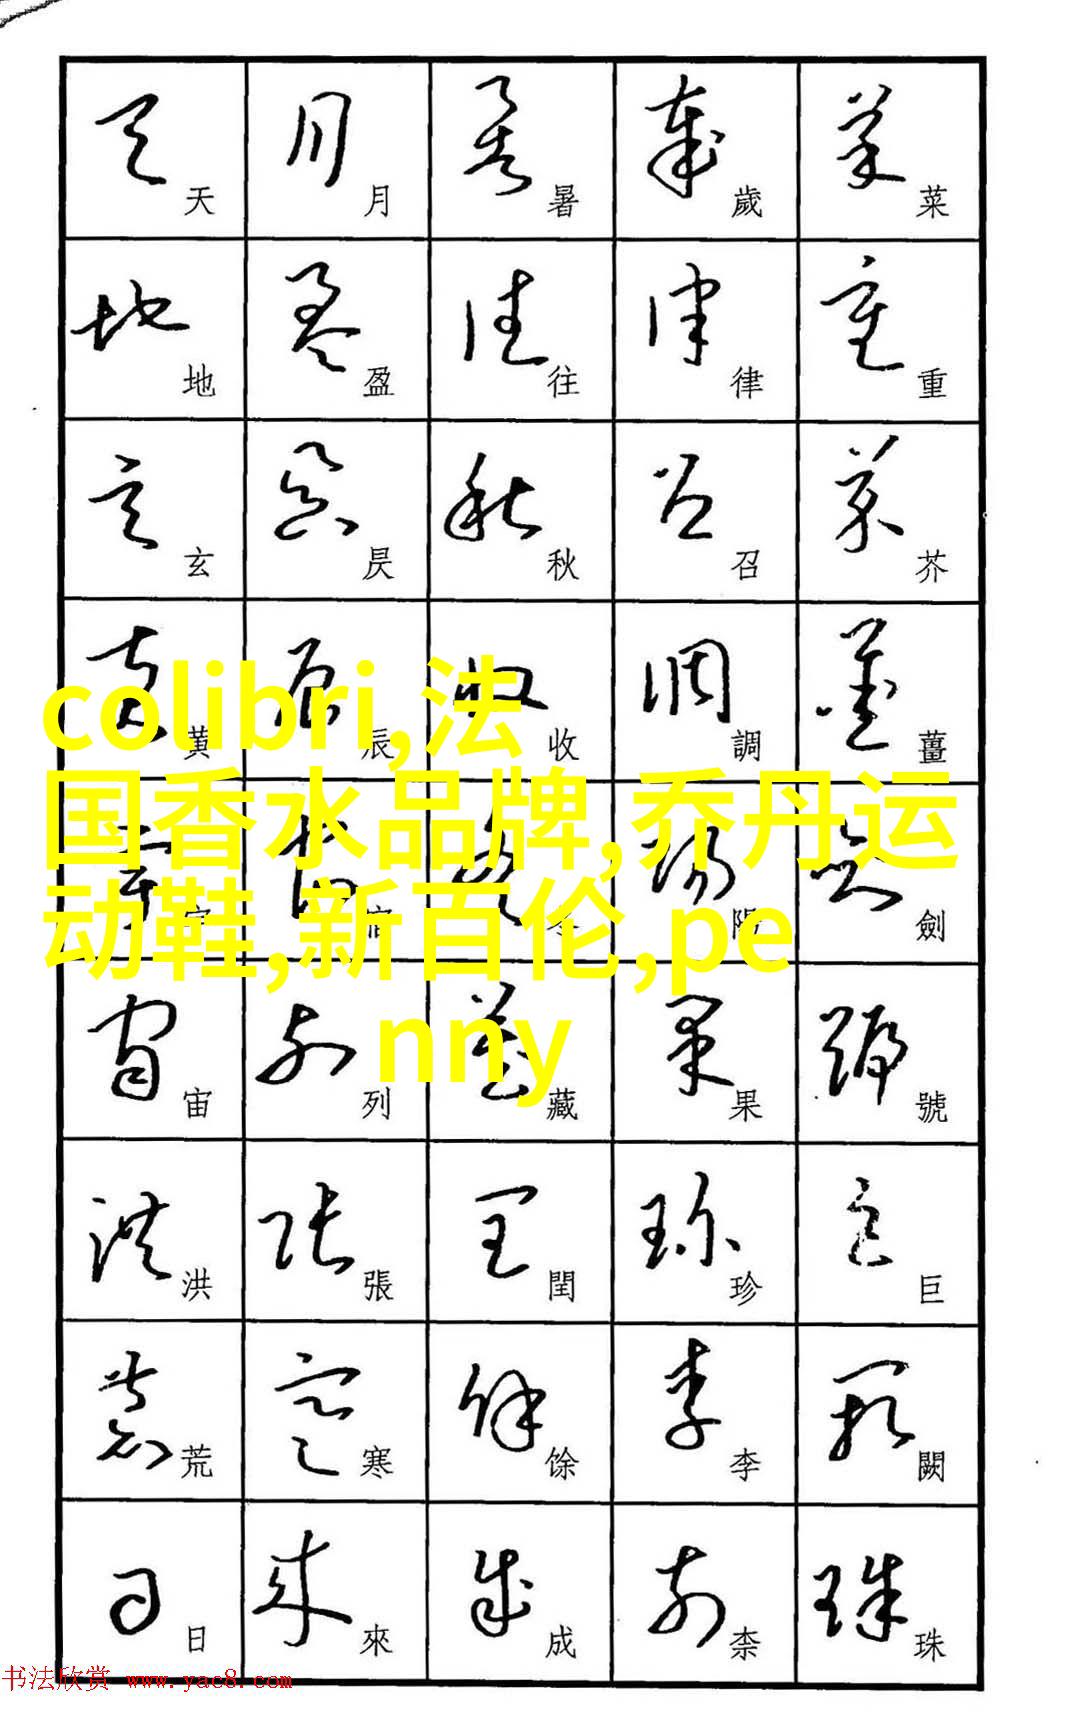 天地玄黃宇宙洪荒日
月盈昃辰宿列張寒來
暑往秋收冬藏閏馀成
歲律召調陽果珍李柰
菜重芥薑劍號巨闕珠
colibri,法
国香水品牌,乔丹运
动鞋,新百伦,pe
nny
书法欣赏 www.yac8.com